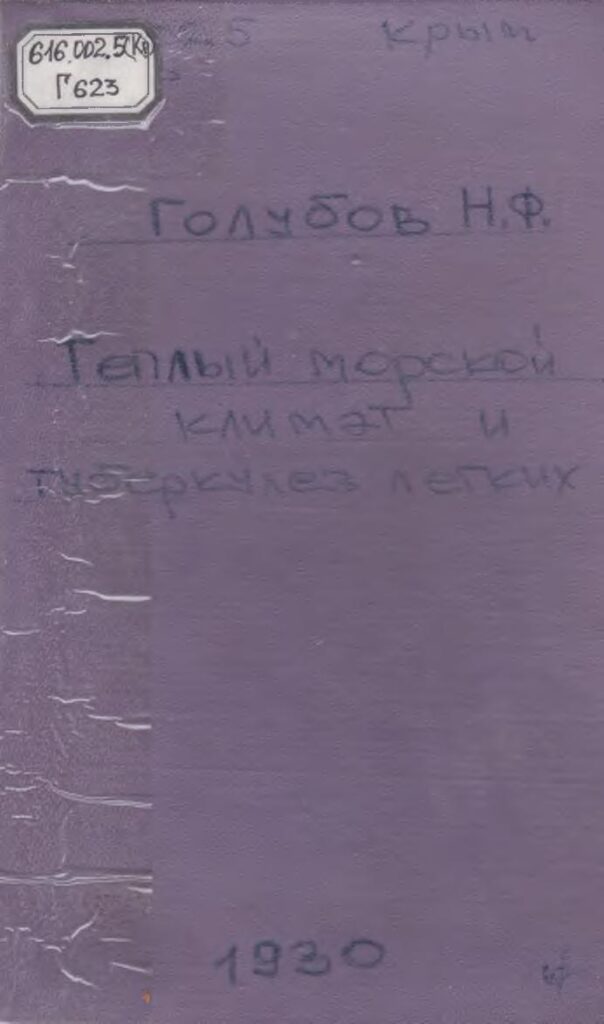 616.002.5(Кр)
Г623
25 Крым
Голубов Н.Ф.
Теплый морской
климат и
туберкулез легких
1930